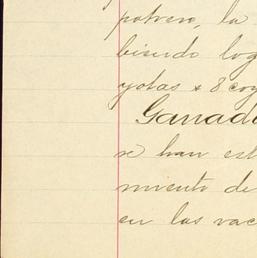 potrero, la
biendo log
yotas & 8 coy
Ganado
se han est
miento de
en las vac